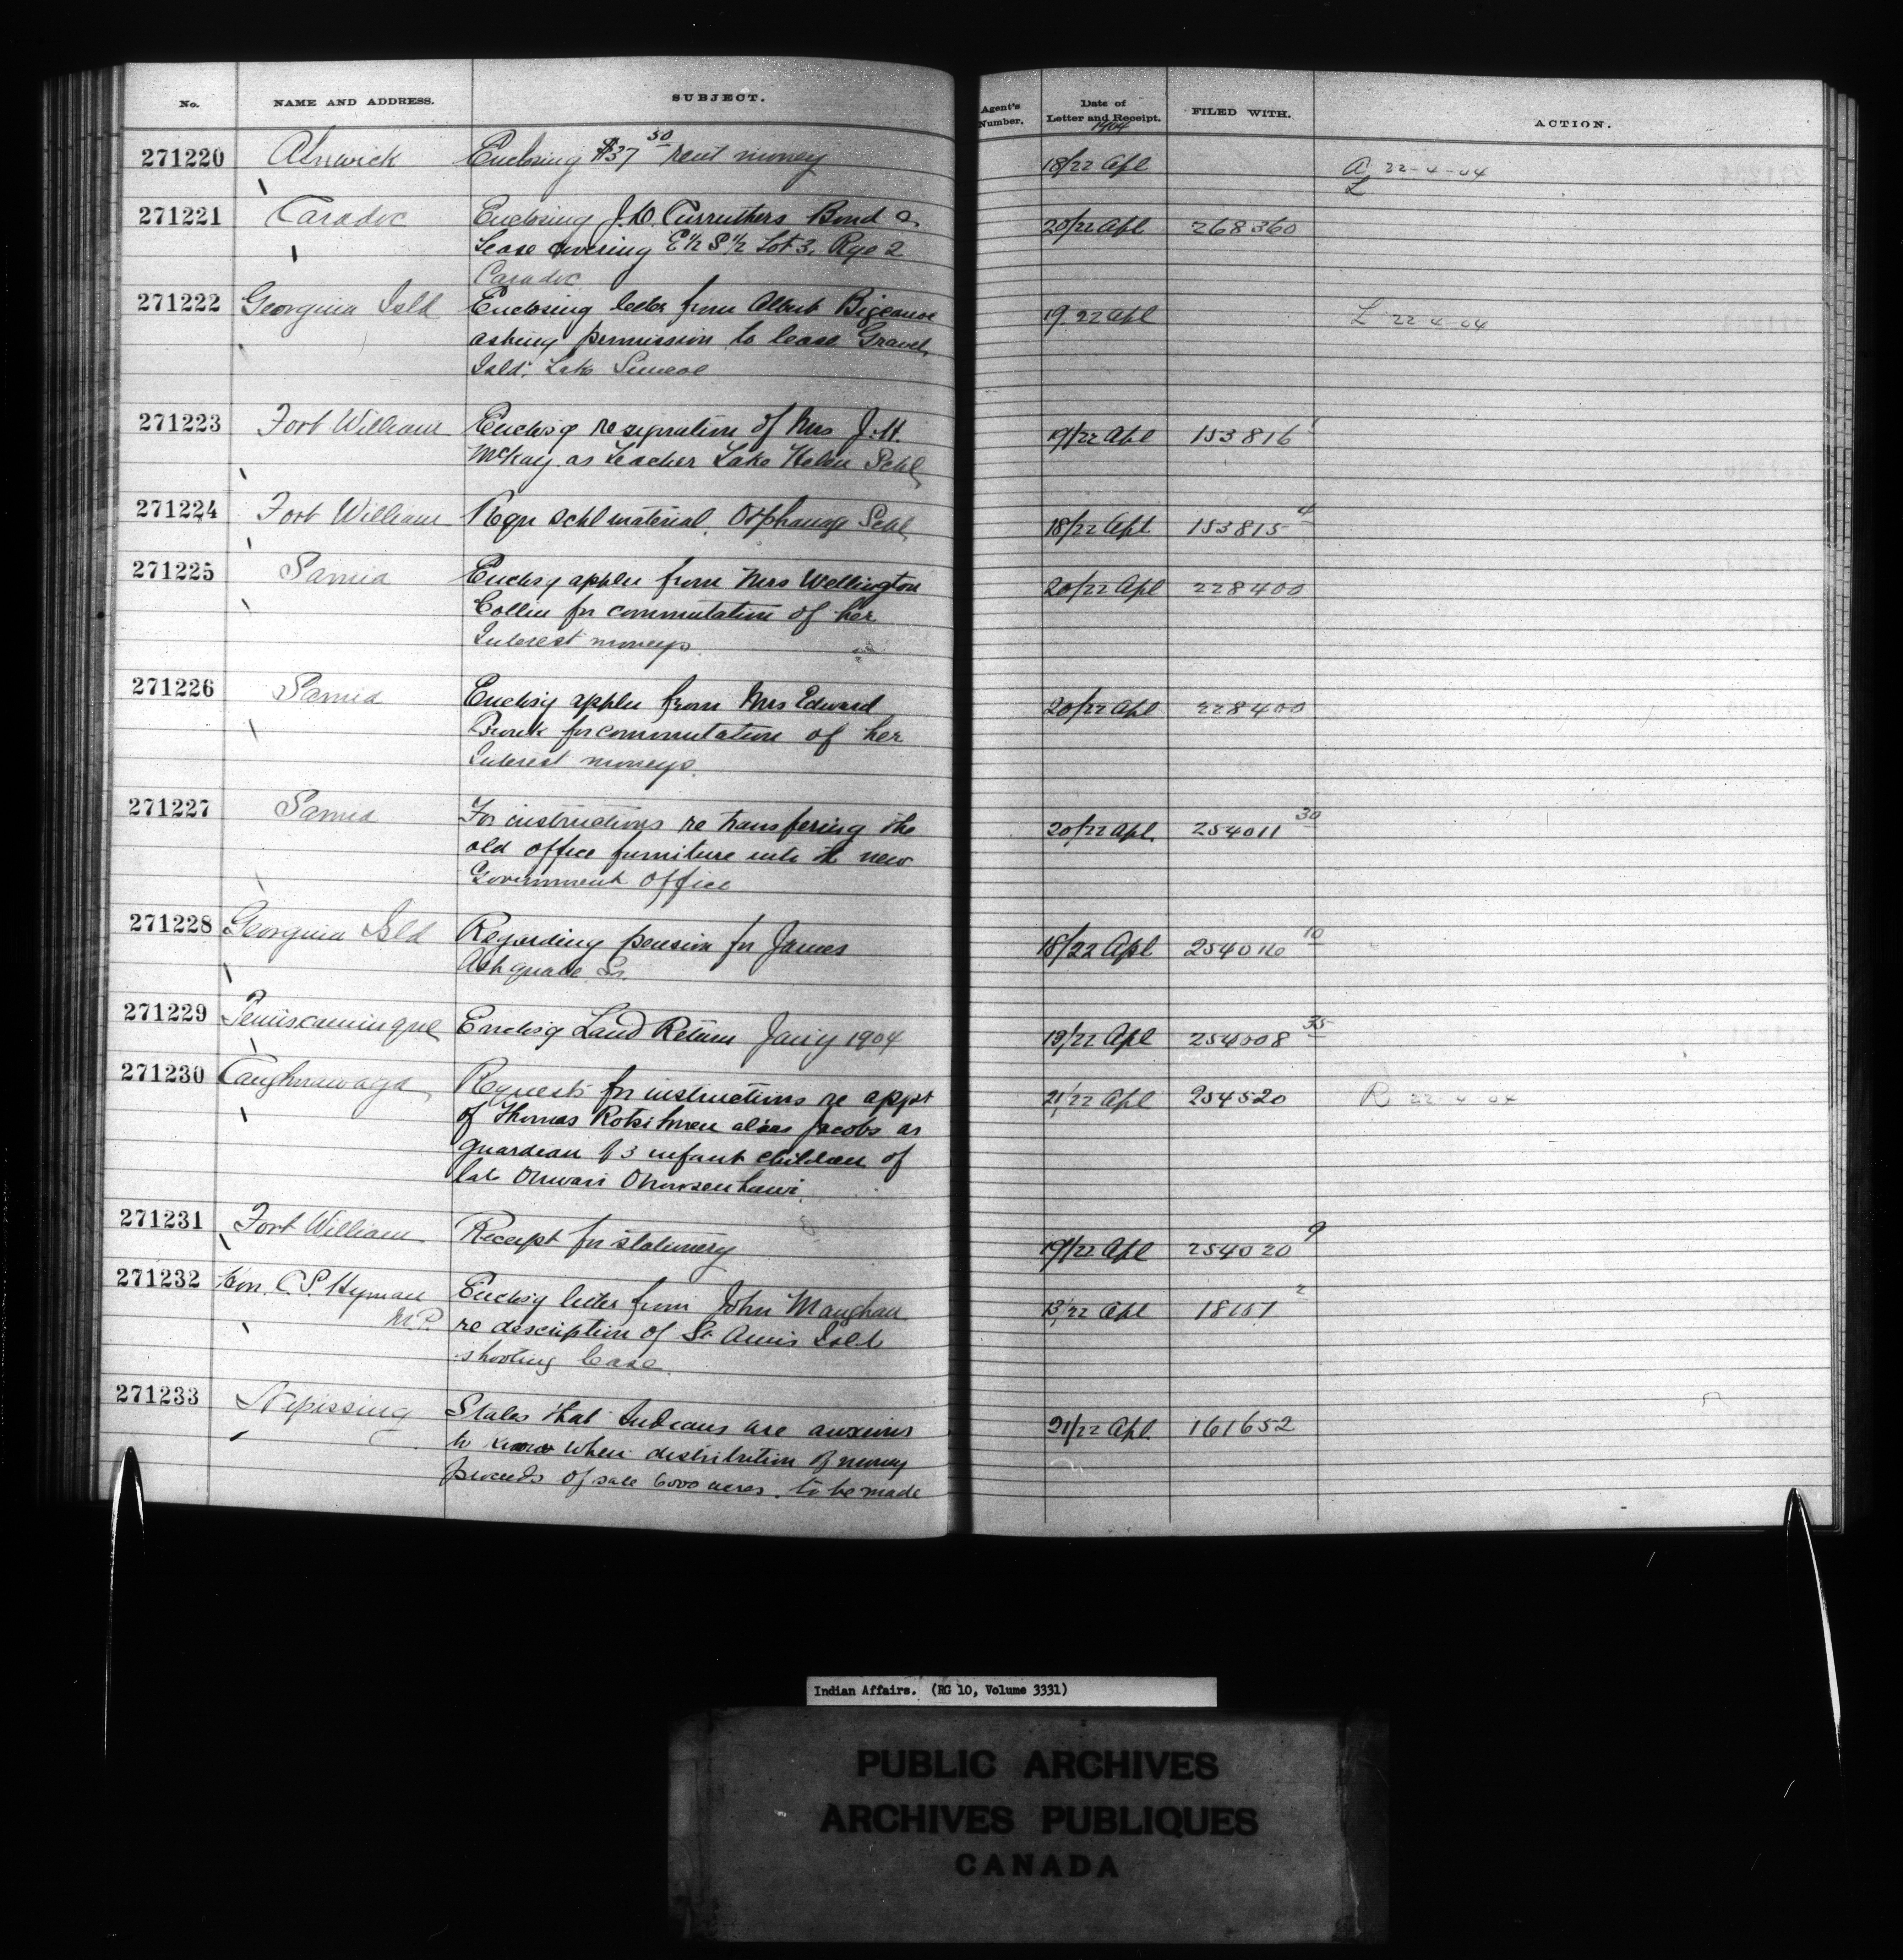 No. NAME AND ADDRESS. SUBJECT. Agent's Number. Date of Letter and Receipt. FILED WITH. ACTION.
1904
271220 Alnwick Enclosing $37 50 rent money 18/22 Apl A 22-4-04
L
271221 Caradoc Enclosing J.W. Curruthers Bond & 20/22 Apl 268360
Lease covering E½ S½ Lot 3, Rge 2
Caradoc
271222 Georgina Isld Enclosing letter from Albert Bigcanoe 19/22 Apl L 22-4-04
asking permission to lease Gravel
Isld. Lake Simcoe
271223 Fort William Enclos'g resignation of Mrs J.H. 19/22 Apl 153816 1
McKay as teacher Lake Helen Schl
271224 Fort William Reqn Schl material. Orphanage Schl 18/22 Apl 153815 4
271225 Sarnia Enclos'g appln from Mrs Wellington 20/22 Apl 228400
for commutation of her
Interest moneys
271226 Sarnia Enclos'g appln from Mrs Edward 20/22 Apl 228400
for commutation of her
Interest moneys
271227 Sarnia For instructions re transfering the 20/22 Apl 254011 30
old office furniture into the new
Government Office
271228 Georgina Isld Regarding pension for James 18/22 Apl 254016 10
Ashquabe Sr.
271229 Temiscamingue Enclos'g Land Return Jan'y 1904 19/22 Apl 254008 35
271230 Caughnawaga Requests for instructions re appt 21/22 Apl 254520 R 22-4-04
of Thomas alias Jacobs as
guardian of 3 infant children of
late
271231 Fort William Receipt for stationery 19/22 Apl 254020 9
271232 Hon. C.S. Hyman Enclos'g letter from John Maughan 13/22 Apl 18157 2
M.P. re description of St Annis Isld
shooting lease
271233 Nipissing States that Indians are anxious 21/22 Apl 161652
to know when distribution of money
proceeds of sale 6000 acres. to be made
Indian Affairs. (RG 10, Volume 3331)
PUBLIC ARCHIVES
ARCHIVES PUBLIQUES
CANADA